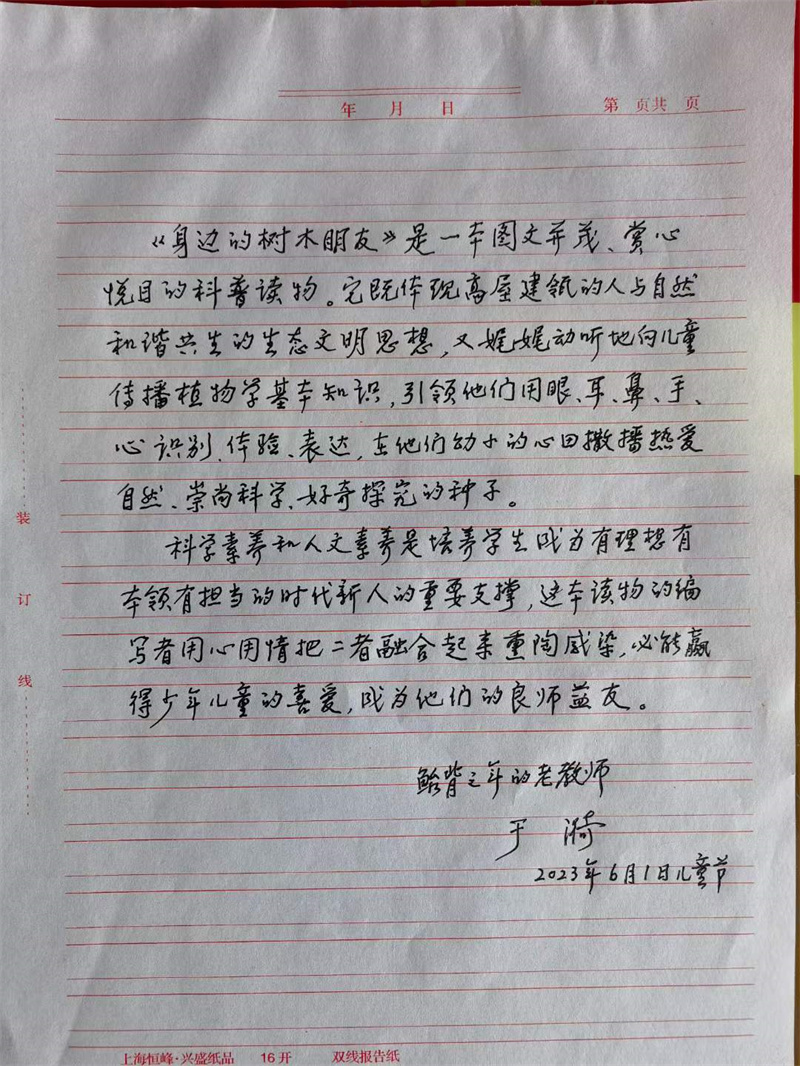 年 月 日
第 页共 页
《身边的树木朋友》是一本图文并茂、赏心
悦目的科普读物。它既体现高屋建瓴的人与自然
和谐共生的生态文明思想，又娓娓动听地向儿童
传播植物学基本知识，引领他们用眼、耳、鼻、手、
心识别、体验、表达，在他们幼小的心田撒播热爱
自然、崇尚科学、好奇探究的种子。
科学素养和人文素养是培养学生成为有理想有
本领有担当的时代新人的重要支撑，这本读物的编
写者用心用情把二者融合起来熏陶感染，必能赢
得少年儿童的喜爱，成为他们的良师益友。
鲐背之年的老教师
于漪
2023年6月1日儿童节
装
订
线
上海恒峰·兴盛纸品 16开 双线报告纸